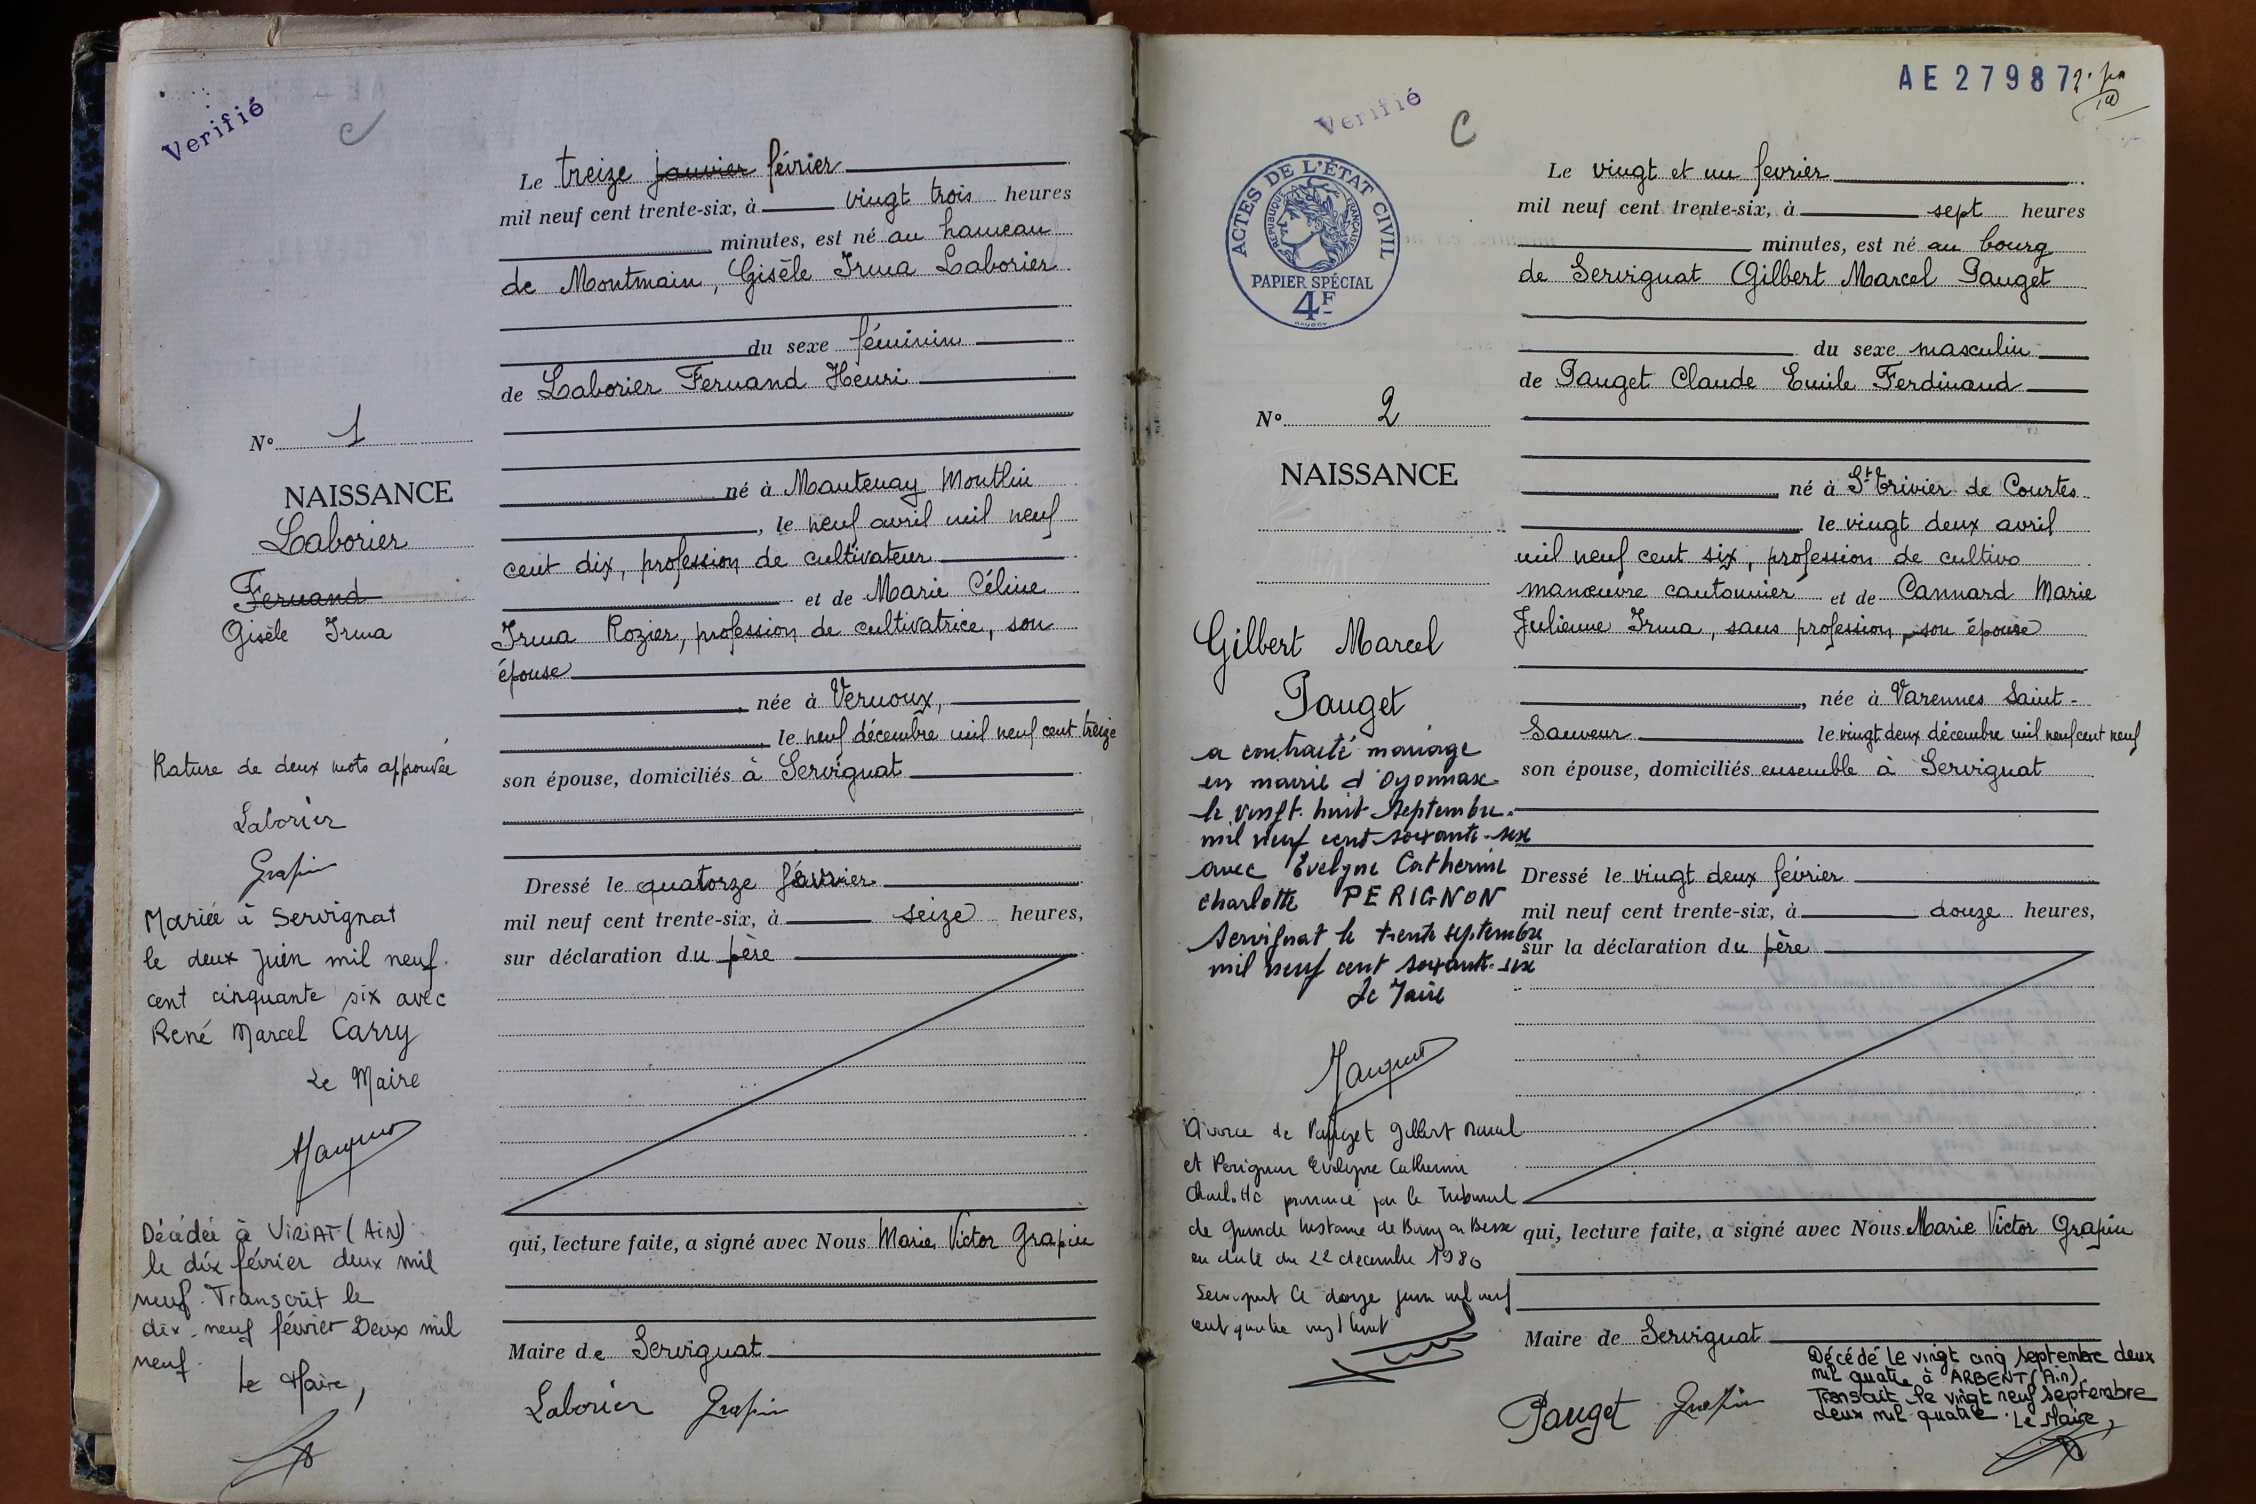 Verifié
C
Le treize janvier février
mil neuf cent trente-six, à vingt trois heures
minutes, est né au hameau
de Montmain, Gisèle Irma Laborier
du sexe féminin
de Laborier Fernand Henri
né à Mantenay Montlin
, le neuf avril mil neuf
cent dix, profession de cultivateur
et de Marie Céline
Irma Rozier, profession de cultivatrice, son
épouse
, née à Vernoux,
le neuf décembre mil neuf cent treize
son épouse, domiciliés à Servignat
Dressé le quatorze février
mil neuf cent trente-six, à seize heures,
sur déclaration du père
qui, lecture faite, a signé avec Nous Marie Victor Grapin
Maire de Servignat
Laborier Grapin
N° 1
NAISSANCE
Laborier
Fernand
Gisèle Irma
Rature de deux mots approuvée
Laborier
Grapin
Mariée à Servignat
le deux Juin mil neuf
cent cinquante six avec
René Marcel Carry
Le Maire
Décédée à VIRIAT (AiN)
le dix février deux mil
neuf. Transcrit le
dix-neuf février Deux mil
neuf.
Le Maire,
AE27987
Verifié
C
ACTES DE L'ÉTAT CIVIL
RÉPUBLIQUE FRANÇAISE
PAPIER SPÉCIAL
4F
Le vingt et un fevrier
mil neuf cent trente-six, à sept heures
minutes, est né au bourg
de Servignat Gilbert Marcel Pauget
du sexe masculin
de Pauget Claude Emile Ferdinand
né à St Trivier de Courtes
le vingt deux avril
mil neuf cent six, profession de cultivo
manœuvre cantonnier et de Cannard Marie
Julienne Irma, sans profession, son épouse
, née à Varennes Saint-
Sauveur le vingt deux décembre mil neuf cent neuf
son épouse, domiciliés ensemble à Servignat
Dressé le vingt deux février
mil neuf cent trente-six, à douze heures,
sur la déclaration du père
qui, lecture faite, a signé avec Nous Marie Victor Grapin
Maire de Servignat
Pauget Grapin
Décédé le vingt cinq septembre deux
mil quatre à ARBENT (Ain)
Transcrit le vingt neuf septembre
deux mil quatre. Le Maire,
N° 2
NAISSANCE
Gilbert Marcel
Pauget
a contracté mariage
en mairie d'Oyonnax
le vingt-huit septembre
mil neuf cent soixante-six
avec Evelyne Catherine
Charlotte PERIGNON
Servignat le trente septembre
mil neuf cent soixante-six
Le Maire
Divorce de Pauget Gilbert Marcel
et Perignon Evelyne Catherine
Charlotte prononcé par le Tribunal
de Grande Instance de Bourg en Bresse
en date du 22 decembre 1980
Servignat le douze juin mil neuf
cent quatre vingt huit